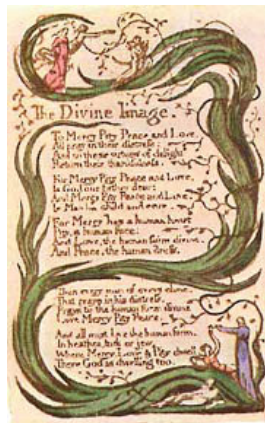 The Divine Image.
To Mercy Pity Peace and Love,
All pray in their distress:
And to these virtues of delight
Return their thankfulness.
For Mercy Pity Peace and Love,
Is God our father dear:
And Mercy Pity Peace and Love,
Is Man his child and care.
For Mercy has a human heart
Pity, a human face:
And Love, the human form divine,
And Peace, the human dress.
Then every man of every clime,
That prays in his distress,
Prays to the human form divine
Love Mercy Pity Peace.
And all must love the human form,
In heathen, turk or jew,
Where Mercy, Love & Pity dwell,
There God is dwelling too.